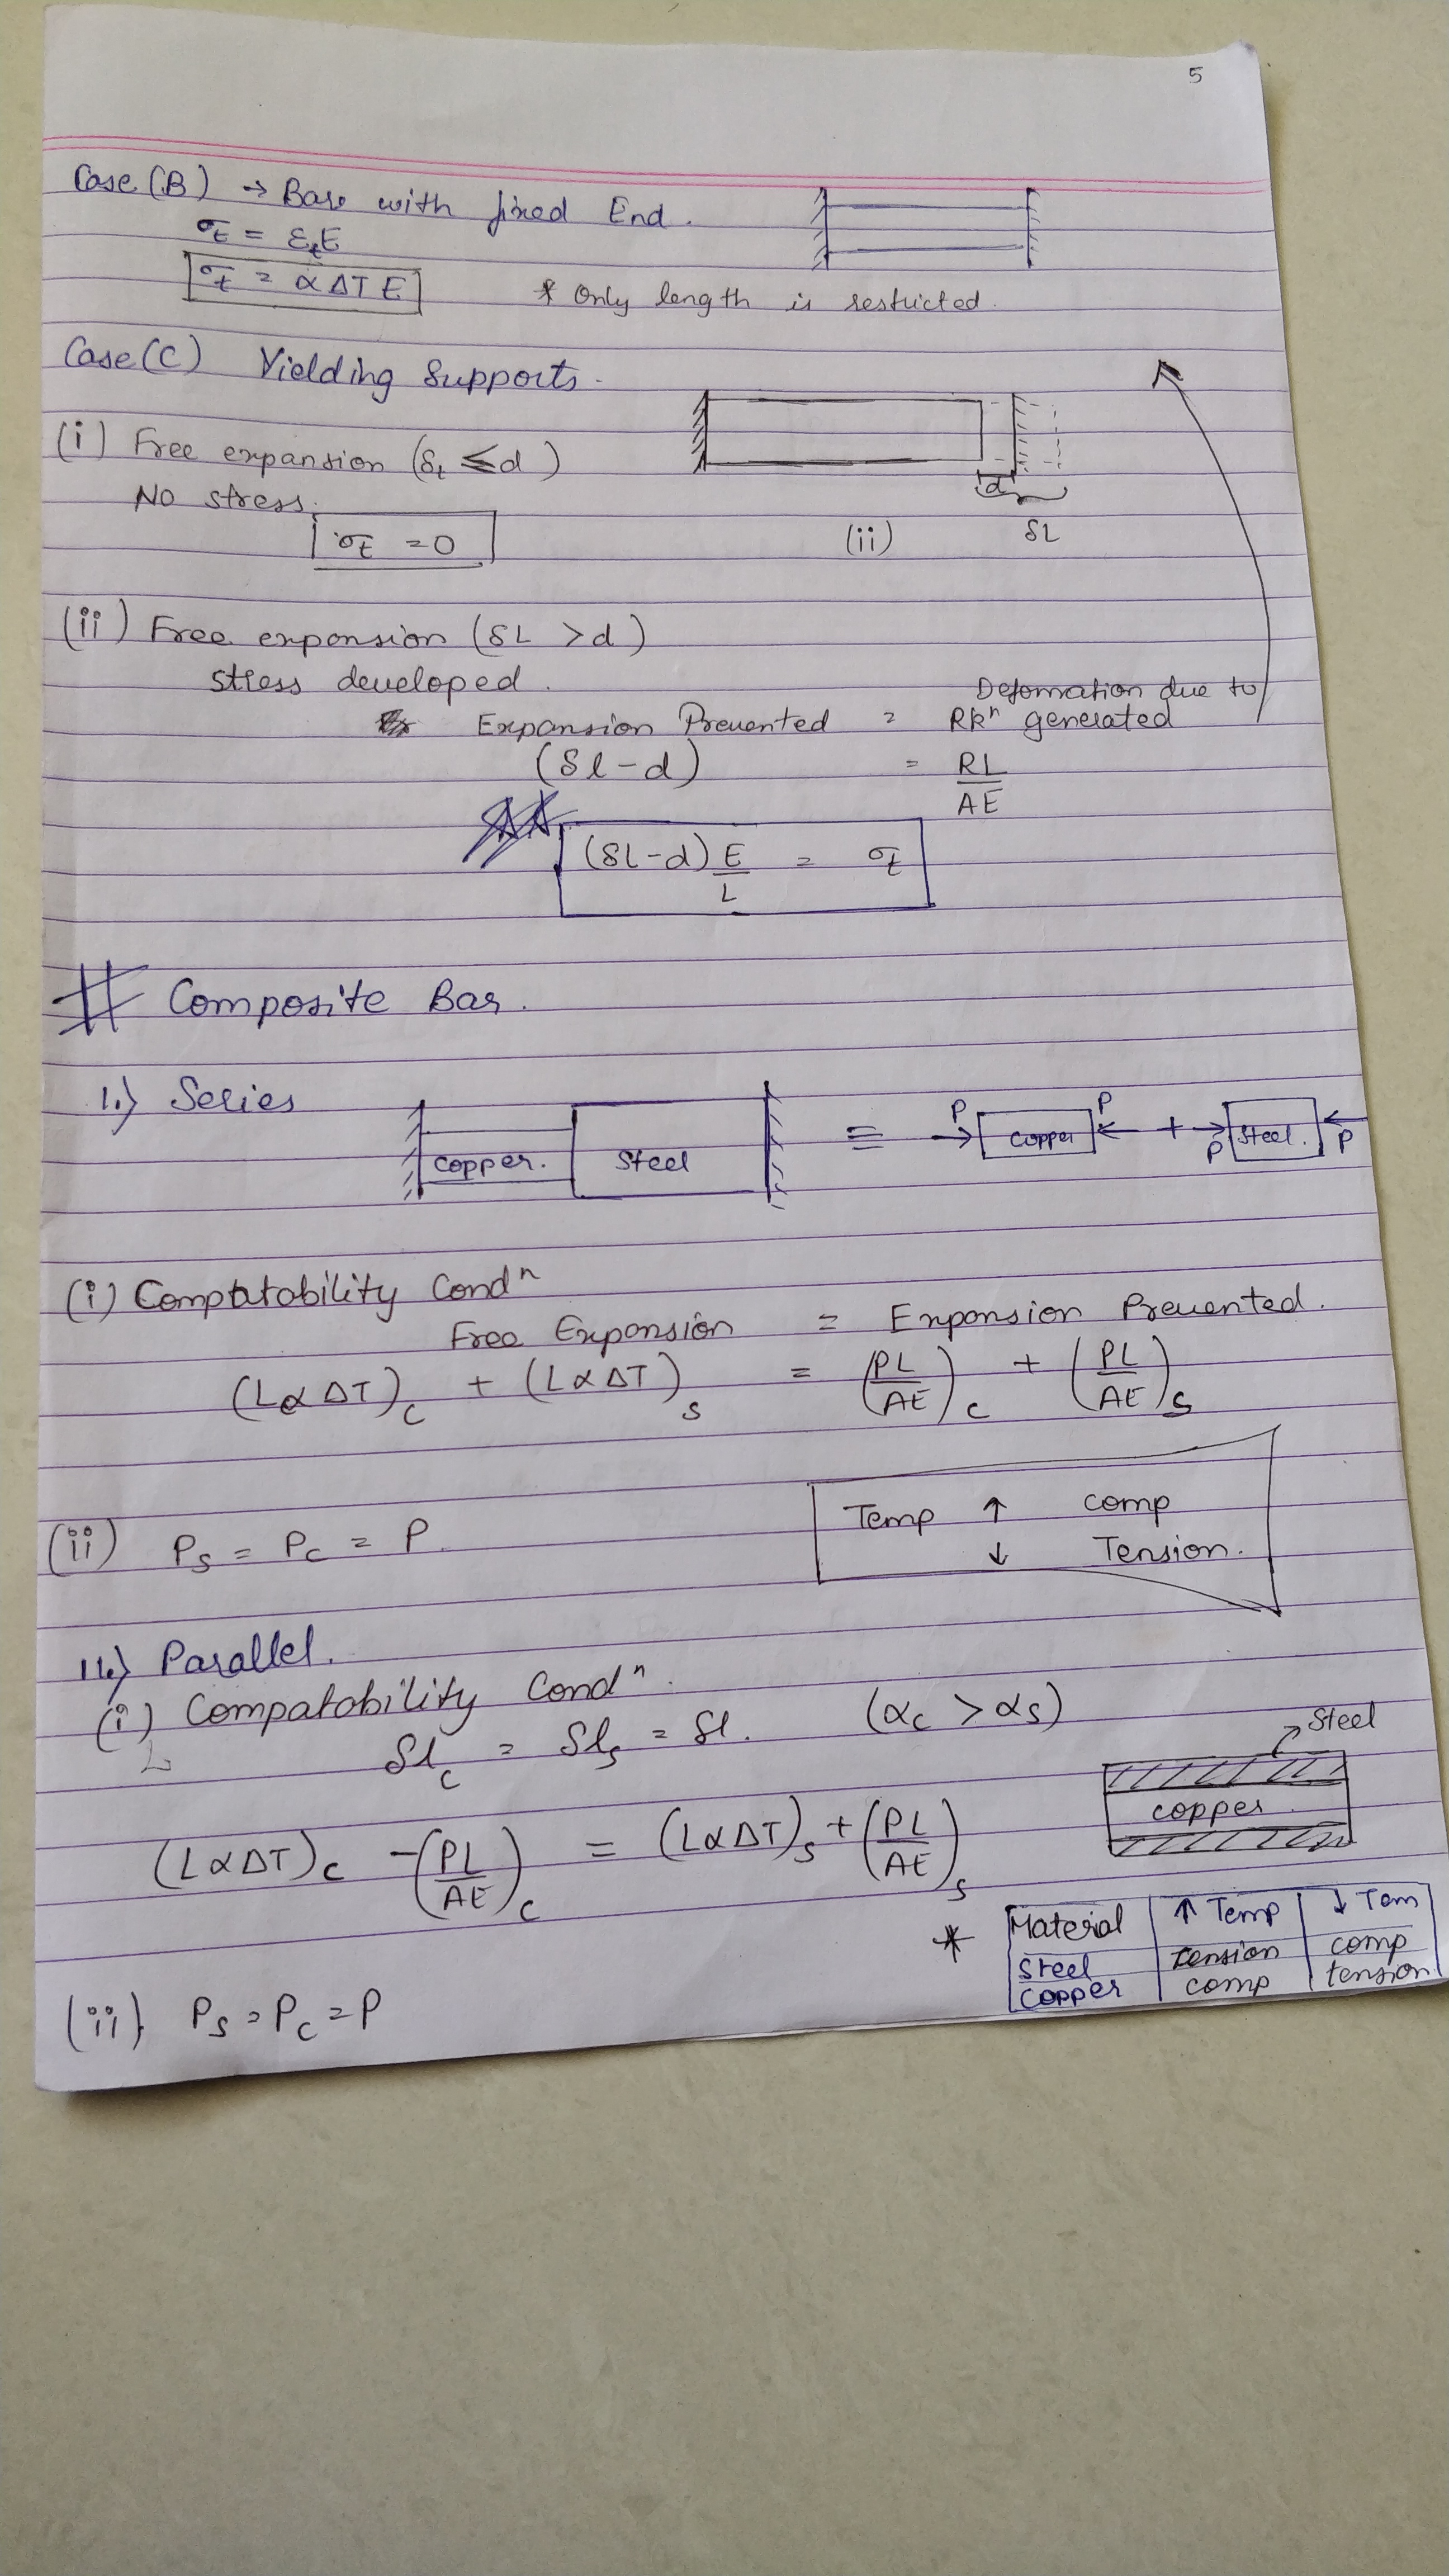 5
Case (B) → Bar with fixed End.
σt = εtE
σt = α ΔT E
* Only length is restricted.
Case (C) Yielding Supports.
(i) Free expansion (δt ≤ d)
No stress.
σt = 0
d
(ii) δL
(ii) Free expansion (δL > d)
stress developed.
Expansion Prevented = Deformation due to Rkⁿ generated
(δl-d) = RL/AE
(δL-d) E/L = σt
# Composite Bar.
I.) Series
copper. Steel ≡ P → copper ← P + P → Steel. ← P
(i) Compatability Condⁿ
Free Expansion = Expansion Prevented.
(LαΔT)c + (LαΔT)s = (PL/AE)c + (PL/AE)s
Temp ↑ comp
↓ Tension.
(ii) Ps = Pc = P.
II.) Parallel.
(i) Compatability Condⁿ.
δlc = δls = δl. (αc > αs)
Steel
copper
(LαΔT)c - (PL/AE)c = (LαΔT)s + (PL/AE)s
* Material ↑ Temp ↓ Tem
Steel tension comp
Copper comp tension
(ii) Ps = Pc = P